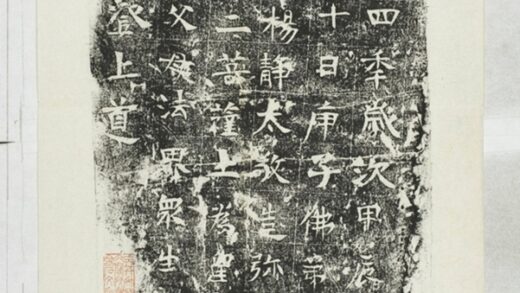 四秊歲次甲辰
十日庚子佛弟
楊靜太敬造弥
二菩薩上為皇
父母法界眾生
登上道